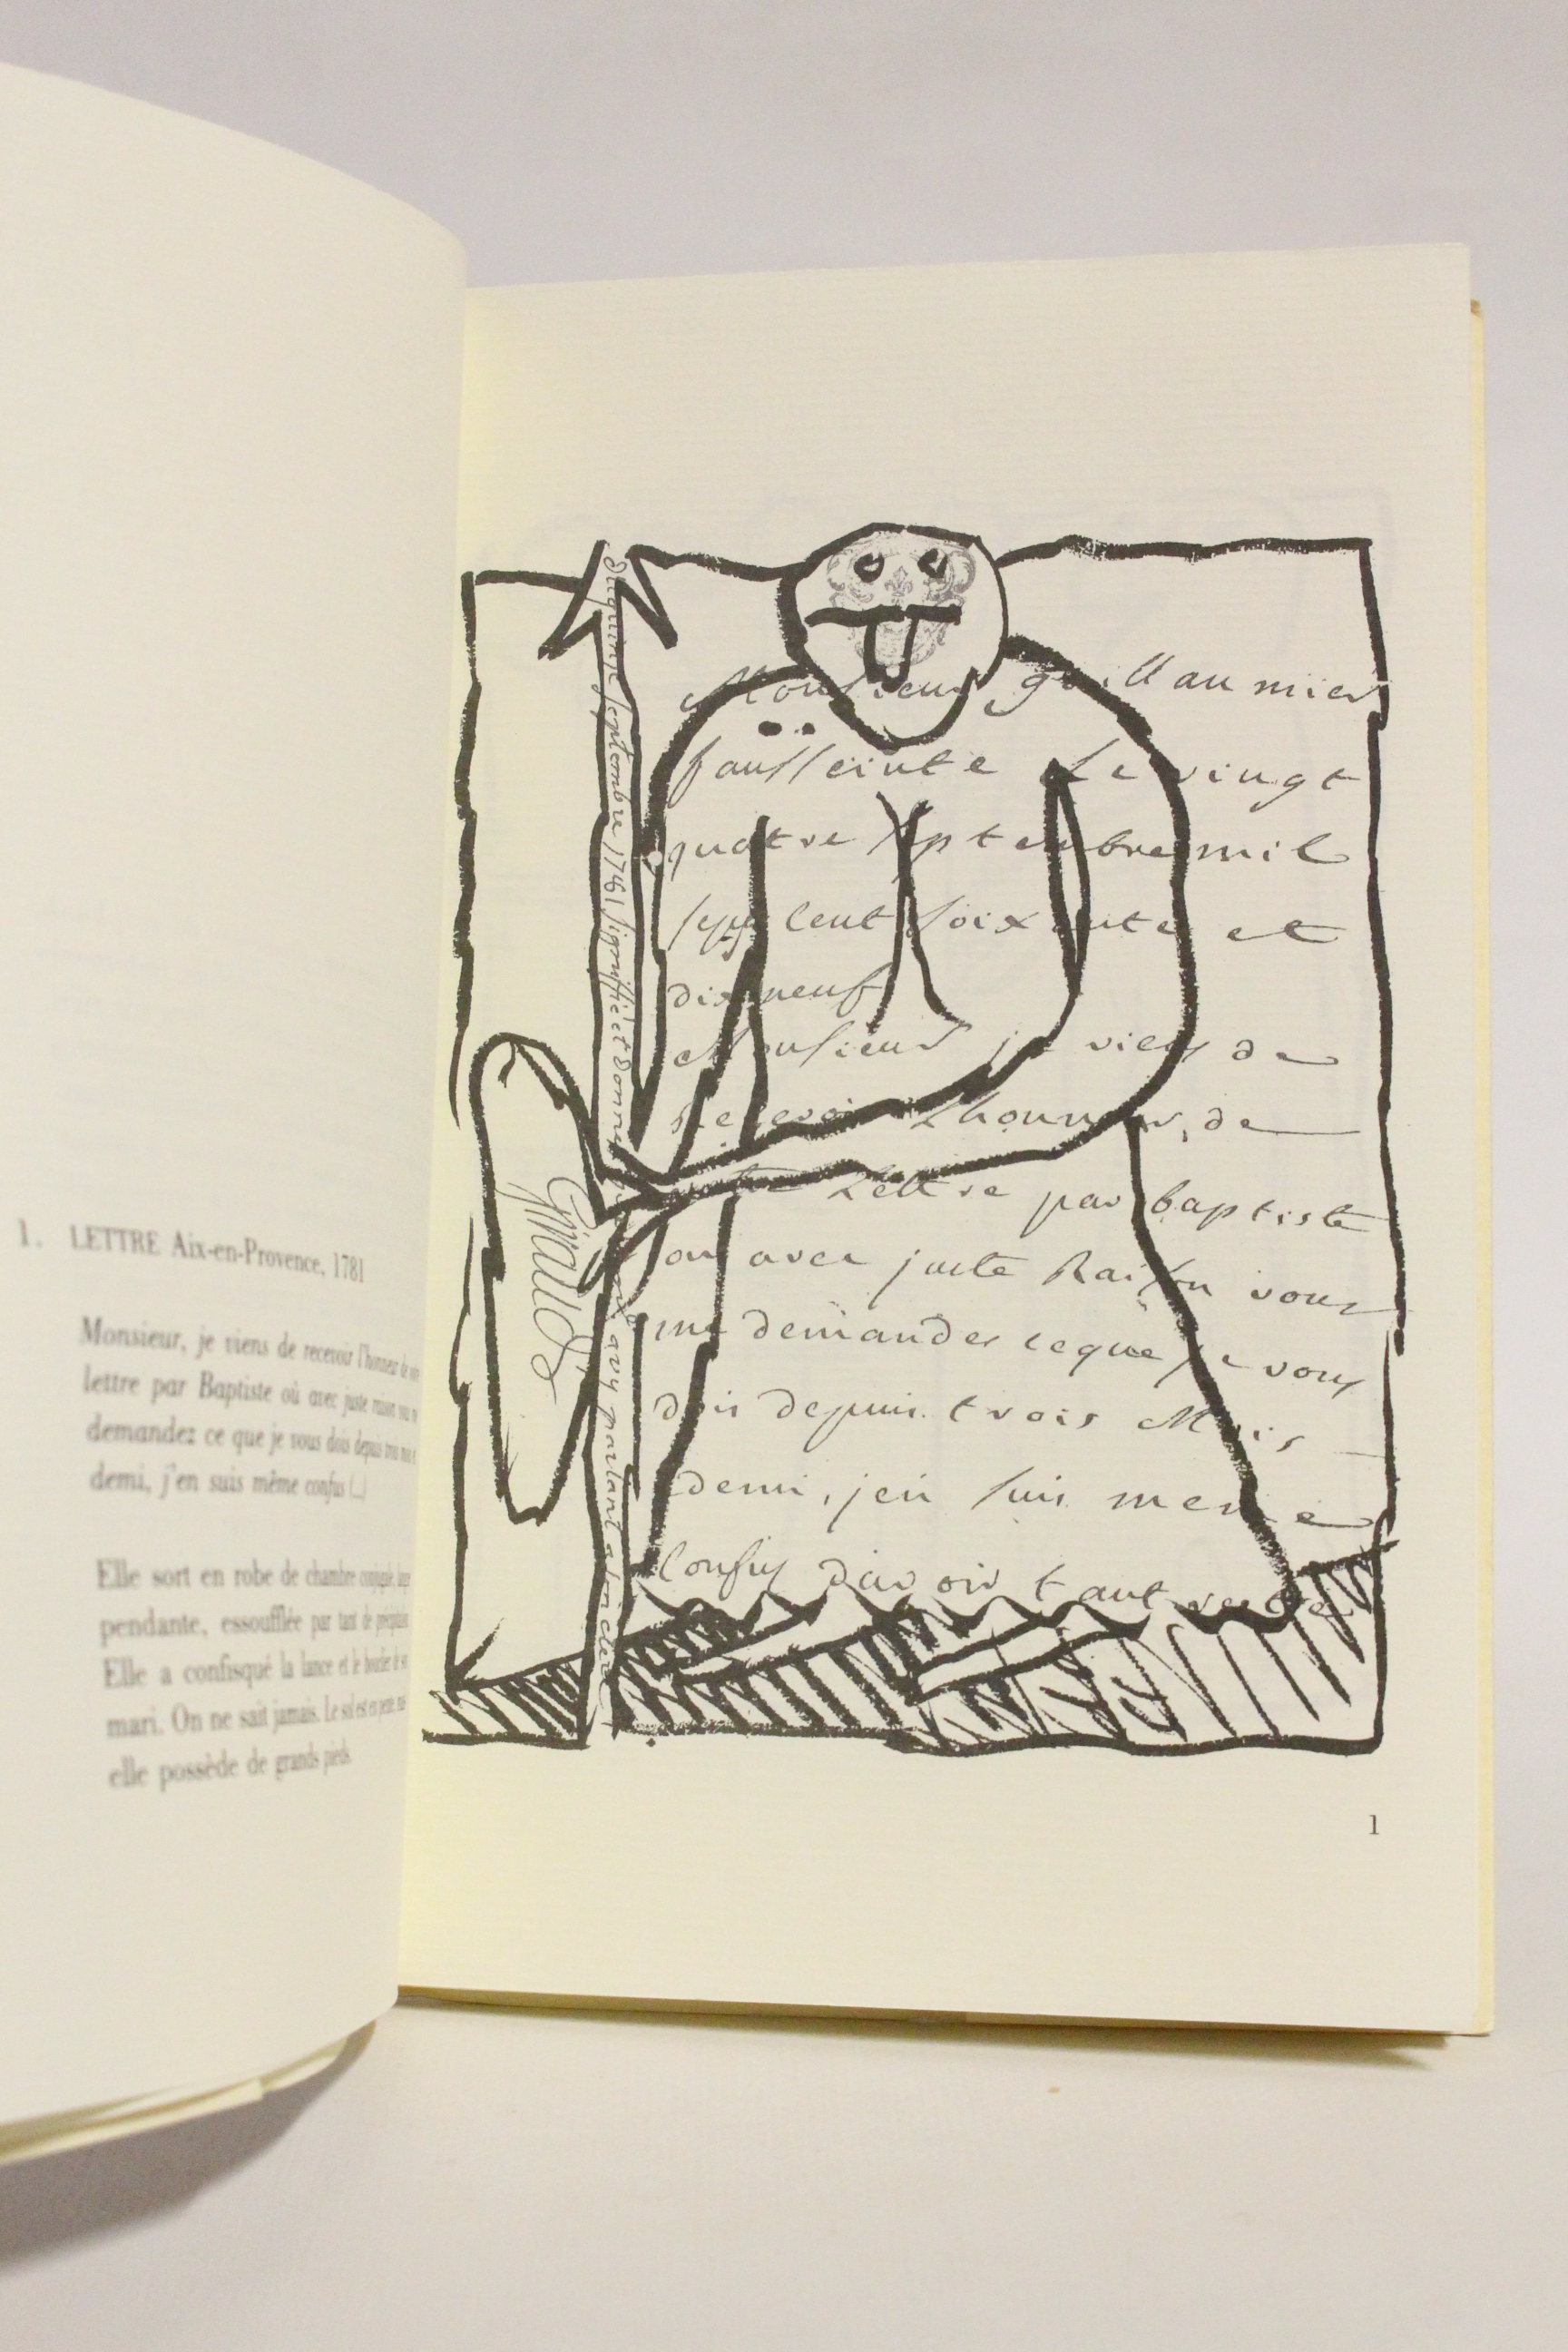 1. LETTRE Aix-en-Provence, 1781
Monsieur, je viens de recevoir l'honneur de
lettre par Baptiste où avec juste raison vous
demandez ce que je vous dois depuis trois mois
demi, j'en suis même confus (...)
Elle sort en robe de chambre
pendante, essoufflée par tant de
Elle a confisqué la lance et le bouclier de
mari. On ne sait jamais. Le sol est en pente, mais
elle possède de grands pieds
septembre 1781 signiffié et donné
avy parlant a
Giraud
Monsieur guillaumier
Le vingt
quatre septembre mil
sept cent soixante et
dix neuf
Monsieur je viens de
Recevoir Lhonneur, de
votre Lettre par baptiste
ou avec juste Raison vous
me demandes ceque je vous
dois depuis trois Mois
demi, jen suis meme
confus davoir tant
1